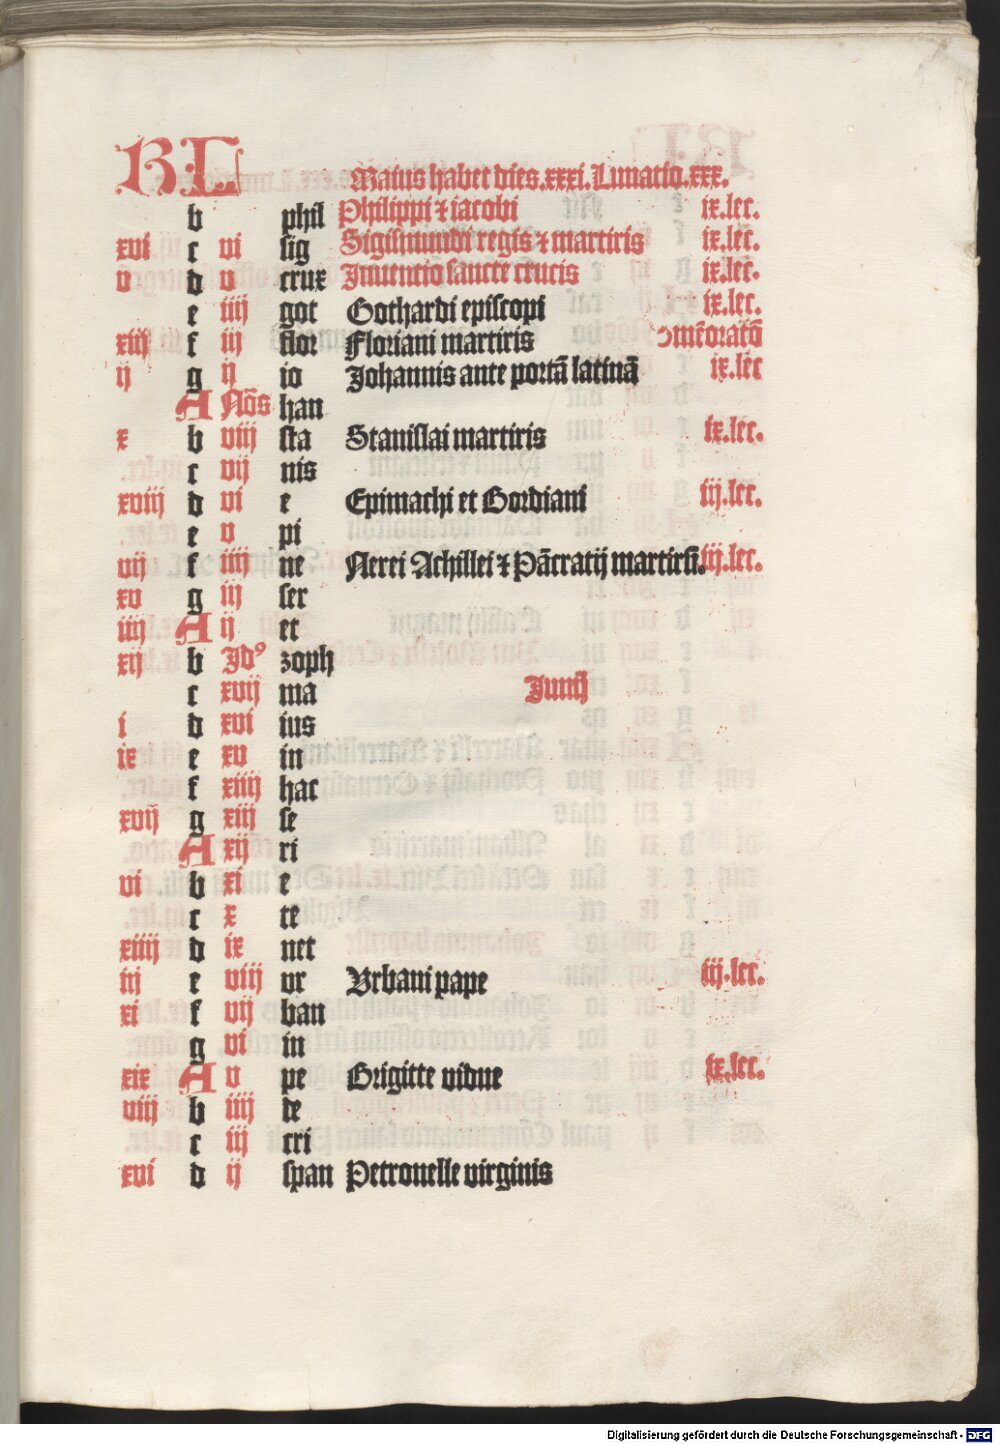 KL Maius habet dies.xxxi.Lunatio.xxx.
b phil Philippi ⁊ iacobi ix.lec.
xvi c vi sig Sigismundi regis ⁊ martiris ix.lec.
v d v crux Inuencio sancte crucis ix.lec.
e iiij got Gothardi episcopi ix.lec.
xiij f iij flor Floriani martiris ↄmẽoratõ
ij g ij io Johannis ante portã latinã ix.lec
A Nõs han
x b viij sta Stanislai martiris ix.lec.
c vij nis
xviij d vi e Epimachi et Gordiani iij.lec.
e v pi
vij f iiij ne Nerei Achillei ⁊ Pãcratij martirũ. iij.lec.
xv g iij ser
iiij A ij et
xij b Idꝰ zoph
c xvij ma Junij
i d xvi ius
ix e xv in
f xiiij hac
xvij g xiij se
A xij ri
vi b xi e
c x te
xiiij d ix net
iij e viij vr Vrbani pape iij.lec.
xi f vij ban
g vi in
xix A v pe Brigitte vidue ix.lec.
viij b iiij de
c iij cri
xvi d ij span Petronelle virginis
Digitalisierung gefördert durch die Deutsche Forschungsgemeinschaft - DFG